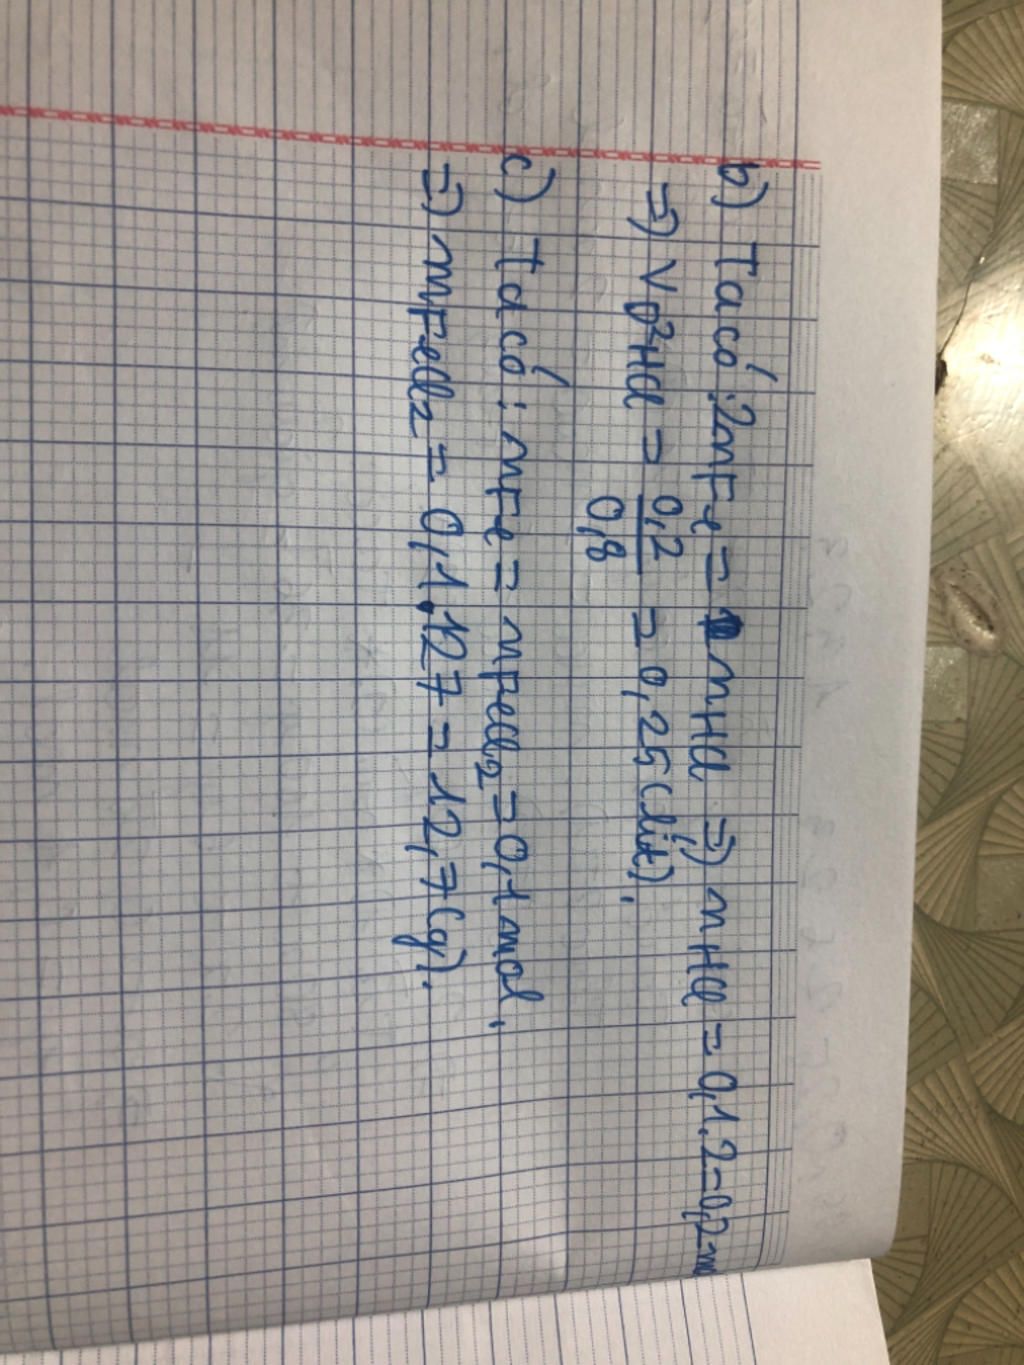 b) Ta có: 2nFe = nHCl => nHCl = 0,1.2=0,2 m
=> V d² HCl = 0,2 / 0,8 = 0,25 (lít).
c) Ta có: nFe = nFeCl2 = 0,1 mol.
=> mFeCl2 = 0,1.127 = 12,7 (g).